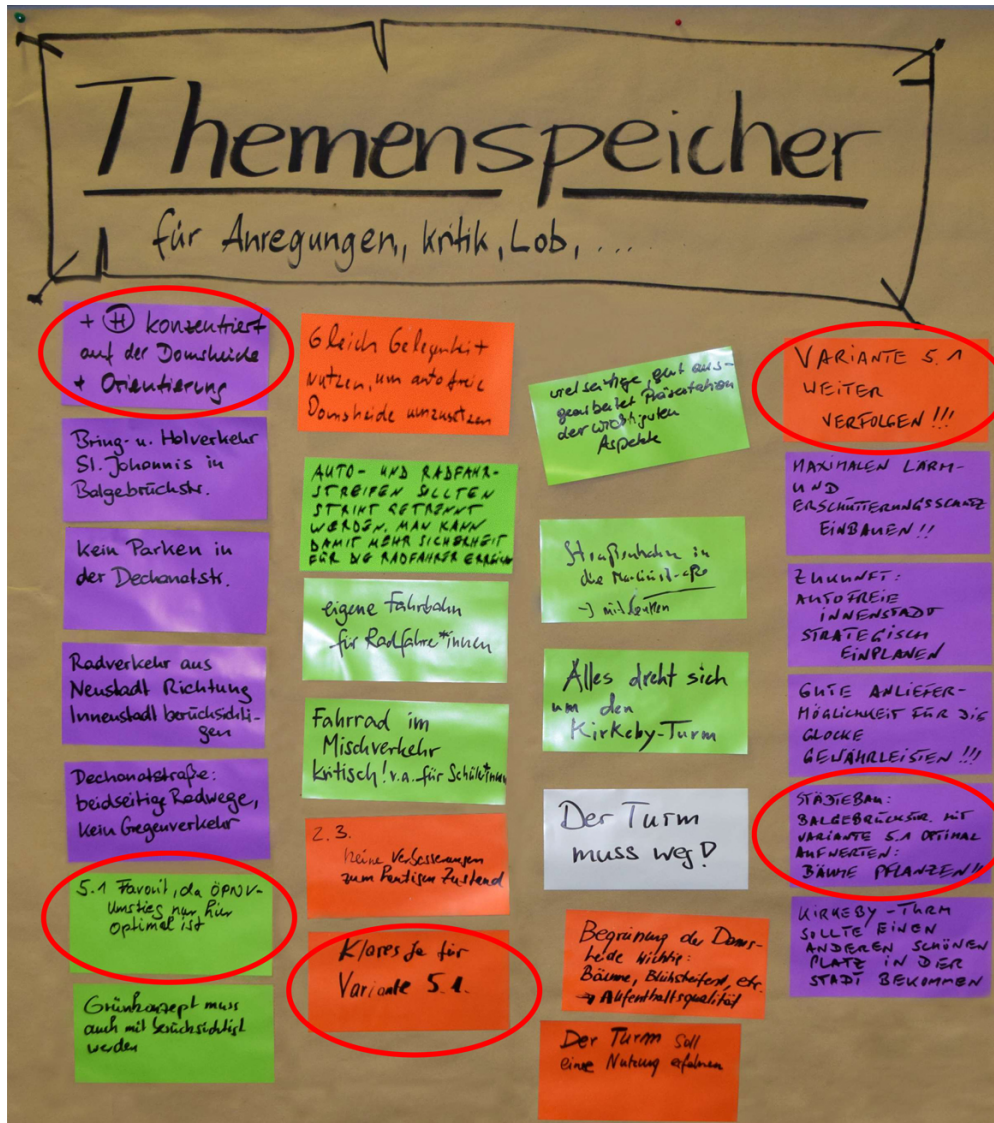 Themenspeicher
für Anregungen, Kritik, Lob, ....
+ Ⓗ konzentriert
auf der Domsheide
+ Orientierung
Bring- u. Holverkehr
St. Johannis in
Balgebrückstr.
Kein Parken in
der Dechanatstr.
Radverkehr aus
Neustadt Richtung
Innenstadt berücksichti-
gen
Dechanatstraße:
beidseitige Radwege,
kein Gegenverkehr
5.1 Favorit, da ÖPNV-
Umstieg nur hier
optimal ist
Grünkonzept muss
auch mit berücksichtigt
werden
Gleich Gelegenheit
nutzen, um autofreie
Domsheide umzusetzen
AUTO- UND RADFAHR-
STREIFEN SOLLTEN
STRIKT GETRENNT
WERDEN. MAN KANN
DAMIT MEHR SICHERHEIT
FÜR DIE RADFAHRER ERREICHEN
eigene Fahrbahn
für Radfahre*innen
Fahrrad im
Mischverkehr
kritisch! v.a. für Schüler*innen
2.3.
keine Verbesserungen
zum heutigen Zustand
Klares Ja für
Variante 5.1.
vielseitige, gut aus-
gearbeitet Präsentation
der wichtigsten
Aspekte
Straßenbahn in
die
Alles dreht sich
um den
Kirkeby-Turm
Der Turm
muss weg!
Begrünung der Doms-
heide wichtig:
Bäume, etc.
→ Aufenthaltsqualität
Der Turm soll
eine Nutzung erfahren
VARIANTE 5.1
WEITER
VERFOLGEN!!!
MAXIMALEN LÄRM-
UND
ERSCHÜTTERUNGSSCHUTZ
EINBAUEN!!
ZUKUNFT:
AUTOFREIE
INNENSTADT
STRATEGISCH
EINPLANEN
GUTE ANLIEFER-
MÖGLICHKEIT FÜR DIE
GLOCKE
GEWÄHRLEISTEN!!!
STÄDTEBAU:
BALGEBRÜCKSTR. MIT
VARIANTE 5.1 OPTIMAL
AUFWERTEN:
BÄUME PFLANZEN!!
KIRKEBY-TURM
SOLLTE EINEN
ANDEREN SCHÖNEN
PLATZ IN DER
STADT BEKOMMEN